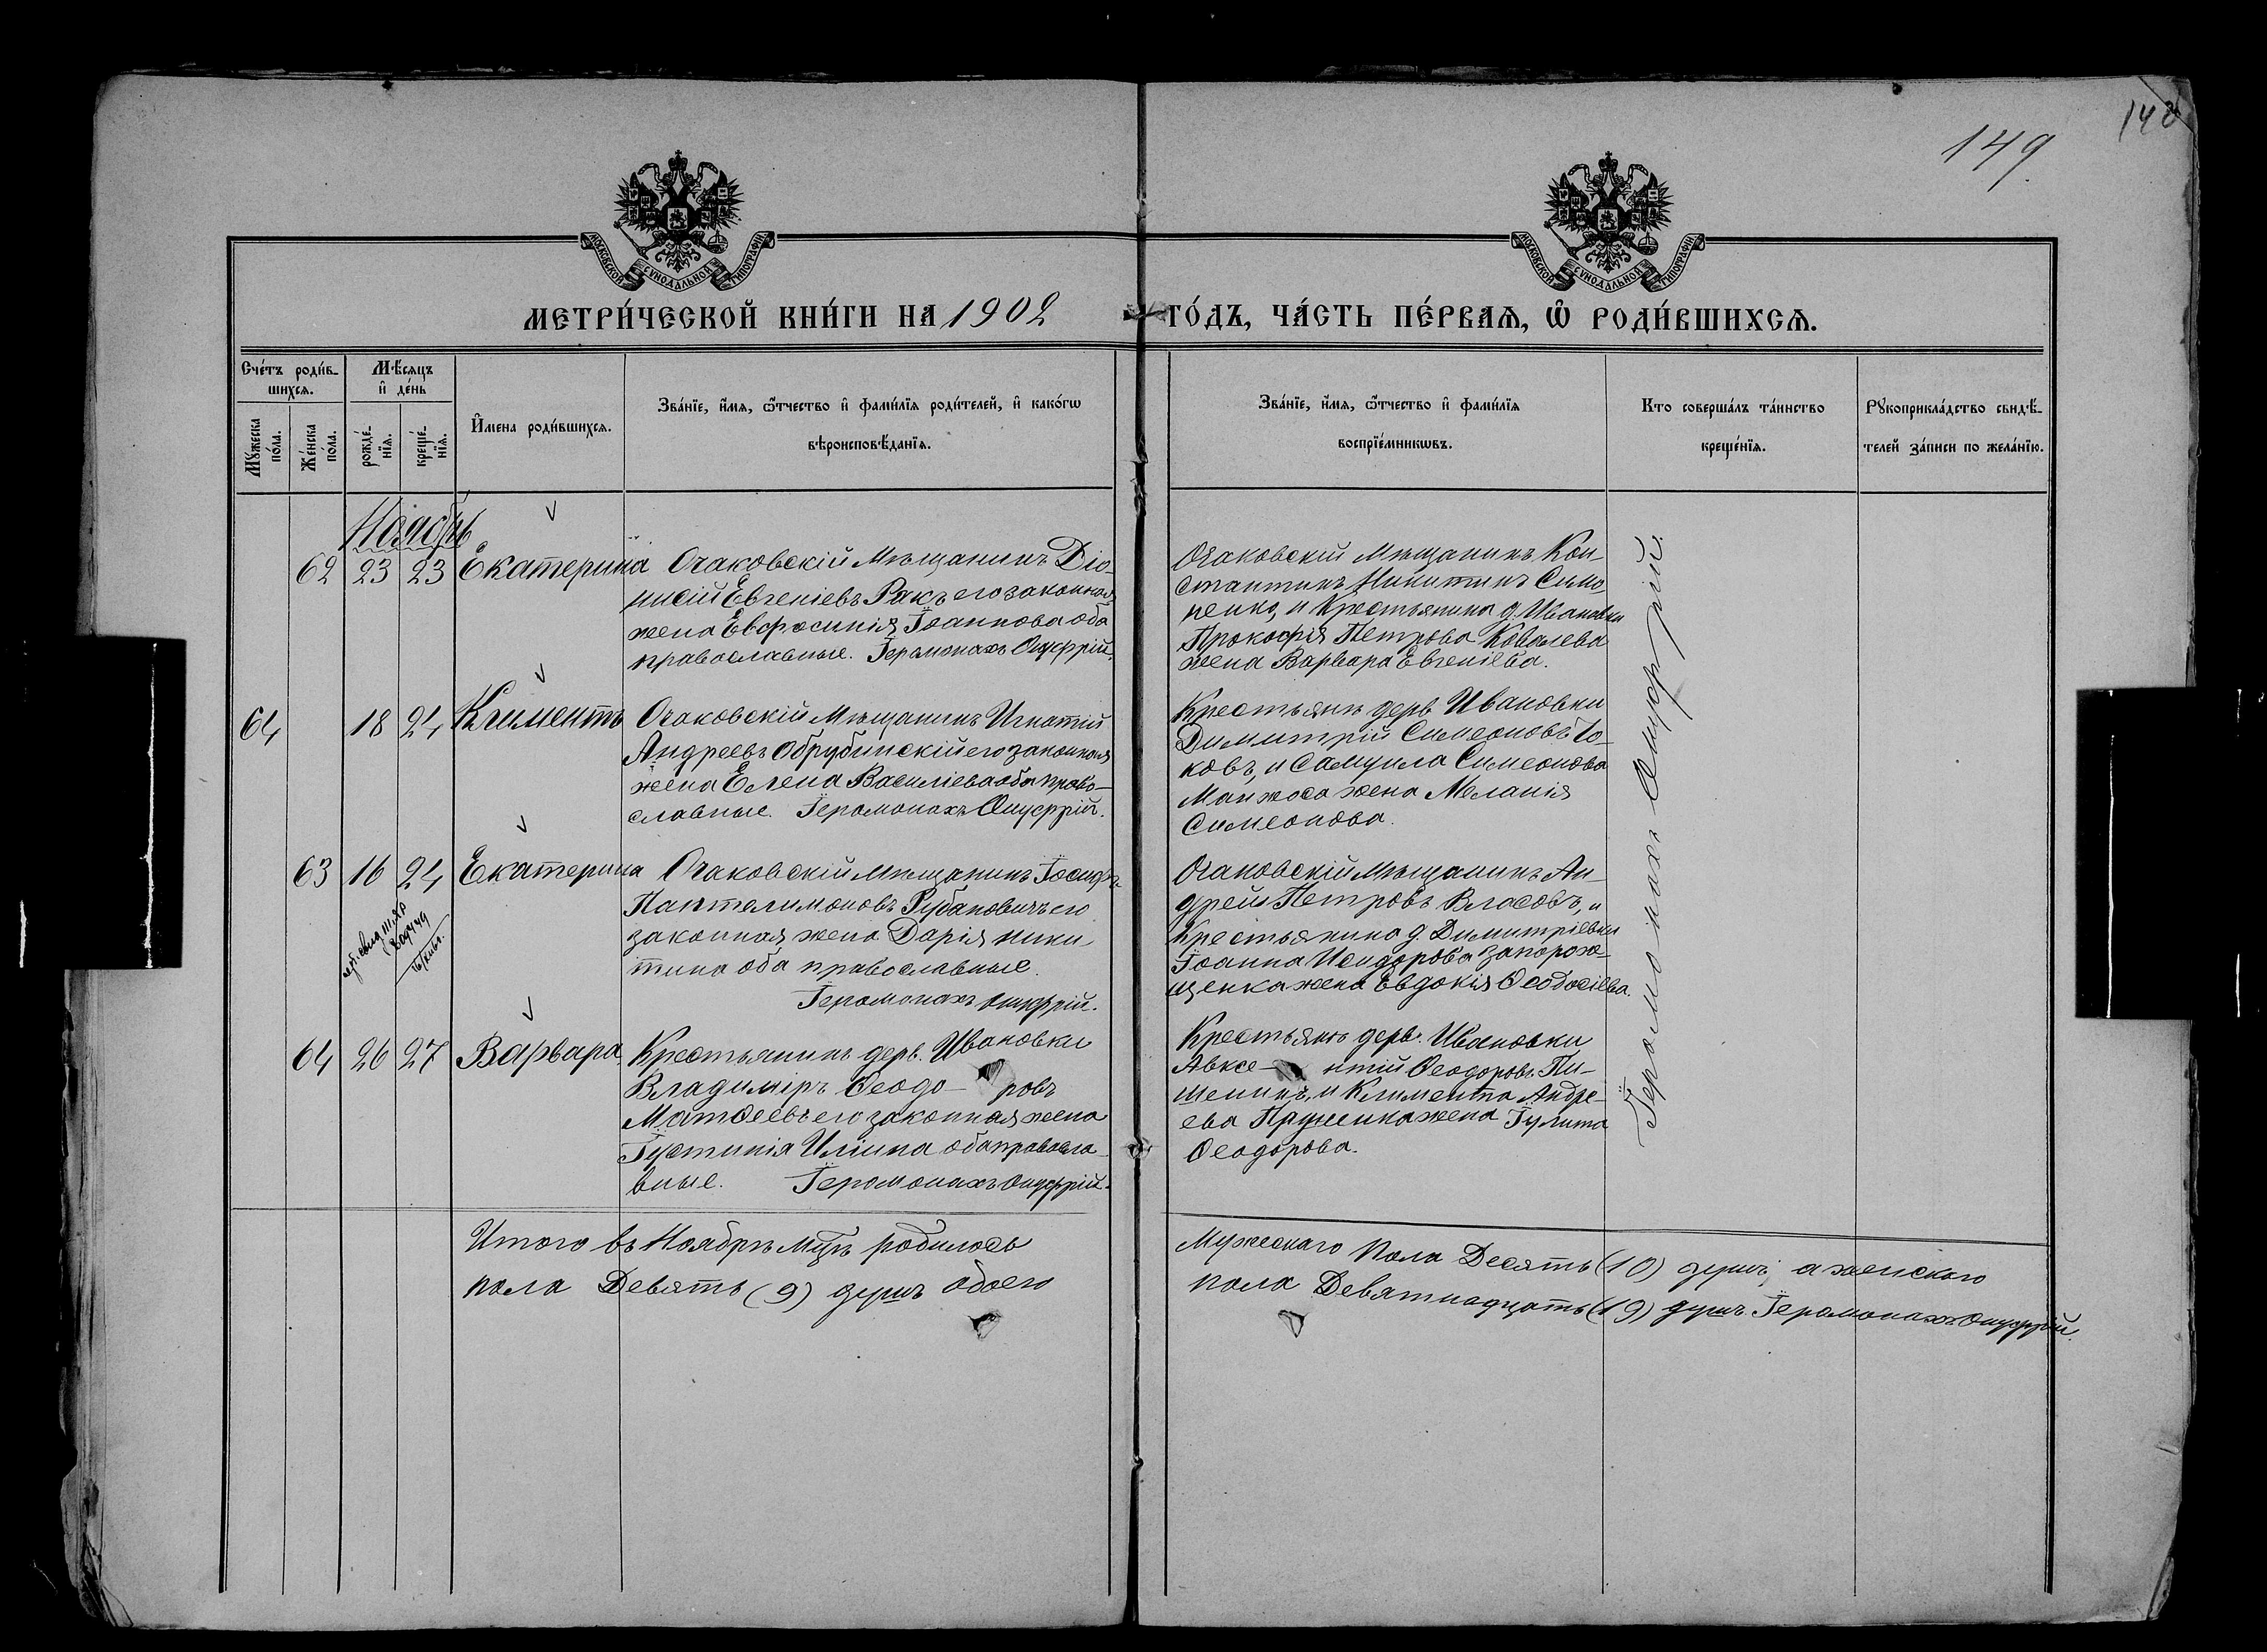 149
149.
МОСКОВСКОЙ СѴНОДАЛЬНОЙ ТИПОГРАФІИ
МОСКОВСКОЙ СѴНОДАЛЬНОЙ ТИПОГРАФІИ
МЕТРИ́ЧЕСКОЙ КНИ́ГИ НА 1902
ГО́ДЪ, ЧА́СТЬ ПЕ́РВАѦ, Ѽ РОДИ́ВШИХСѦ.
Сче́тъ роди́в-
шихсѧ.
Мѣ́сѧцъ
и҆ де́нь
Му́жеска по́ла.
Же́нска по́ла.
рожде́-
нїѧ.
креще́-
нїѧ.
И҆мена роди́вшихсѧ.
Зва́нїе, и҆́мѧ, ѻ҆́тчество и҆ фами́лїѧ роди́телей, и҆ како́гѡ
вѣроисповѣ́данїѧ.
Зва́нїе, и҆́мѧ, ѻ҆́тчество и҆ фами́лїѧ
воспрїе́мникѡвъ.
Кто соверша́лъ та́инство
креще́нїѧ.
Рꙋкоприкла́дство свидѣ́-
телей за́писи по жела́нїю.
Ноябрь
62 23 23 Екатерина Очаковскій Мѣщанинъ Діо-
нисій Евгеніевъ Ракъ его законная
жена Евфросинія Іоаннова оба
православные. Іеромонахъ Онуфрій.
Очаковскій Мѣщанинъ Кон-
стантинъ Никитинъ Симо-
ненко, и Крестьянина д. Ивановки
Прокофія Петрова Ковалева
жена Варвара Евгеніева.
64 18 24 Климентъ Очаковскій Мѣщанинъ Игнатій
Андреевъ Обрубинскій его законная
жена Елена Василіева оба право-
славные. Іеромонахъ Онуфрій.
Крестьянъ дерв. Ивановки
Димитрій Симеоновъ
ковъ, и Самуила Симеонова
Манжоса жена Меланія
Симеонова.
63 16 24 Екатерина Очаковскій мѣщанинъ Іосифъ
Пантелимоновъ Рубановичъ его
законная жена Дарія Ники-
тина оба православные.
Іеромонахъ Онуфрій.
Очаковскій Мѣщанинъ Ан-
дрей Петровъ Власовъ, и
Крестьянина д. Димитріевки
Іоанна Исидорова Запорож-
щенка жена Евдокія Ѳеодосіева.
64 26 27 Варвара Крестьянинъ дерв. Ивановки
Владиміръ Ѳеодо- ровъ
Матѳеевъ его законная жена
Іустинія Иліина оба правосла-
вные. Іеромонахъ Онуфрій.
Крестьянъ дерв. Ивановки
Авксе- нтій Ѳеодоровъ Пи-
шенинъ, и Климента Андре-
ева жена Іулита
Ѳеодорова.
Іеромонахъ Онуфрій.
Итого въ Ноябрѣ мцѣ родилось
пола Девять (9) душъ обоего
Мужескаго пола Десять (10) душъ, а женскаго
пола Девятнадцать (19) душъ. Іеромонахъ Онуфрій.